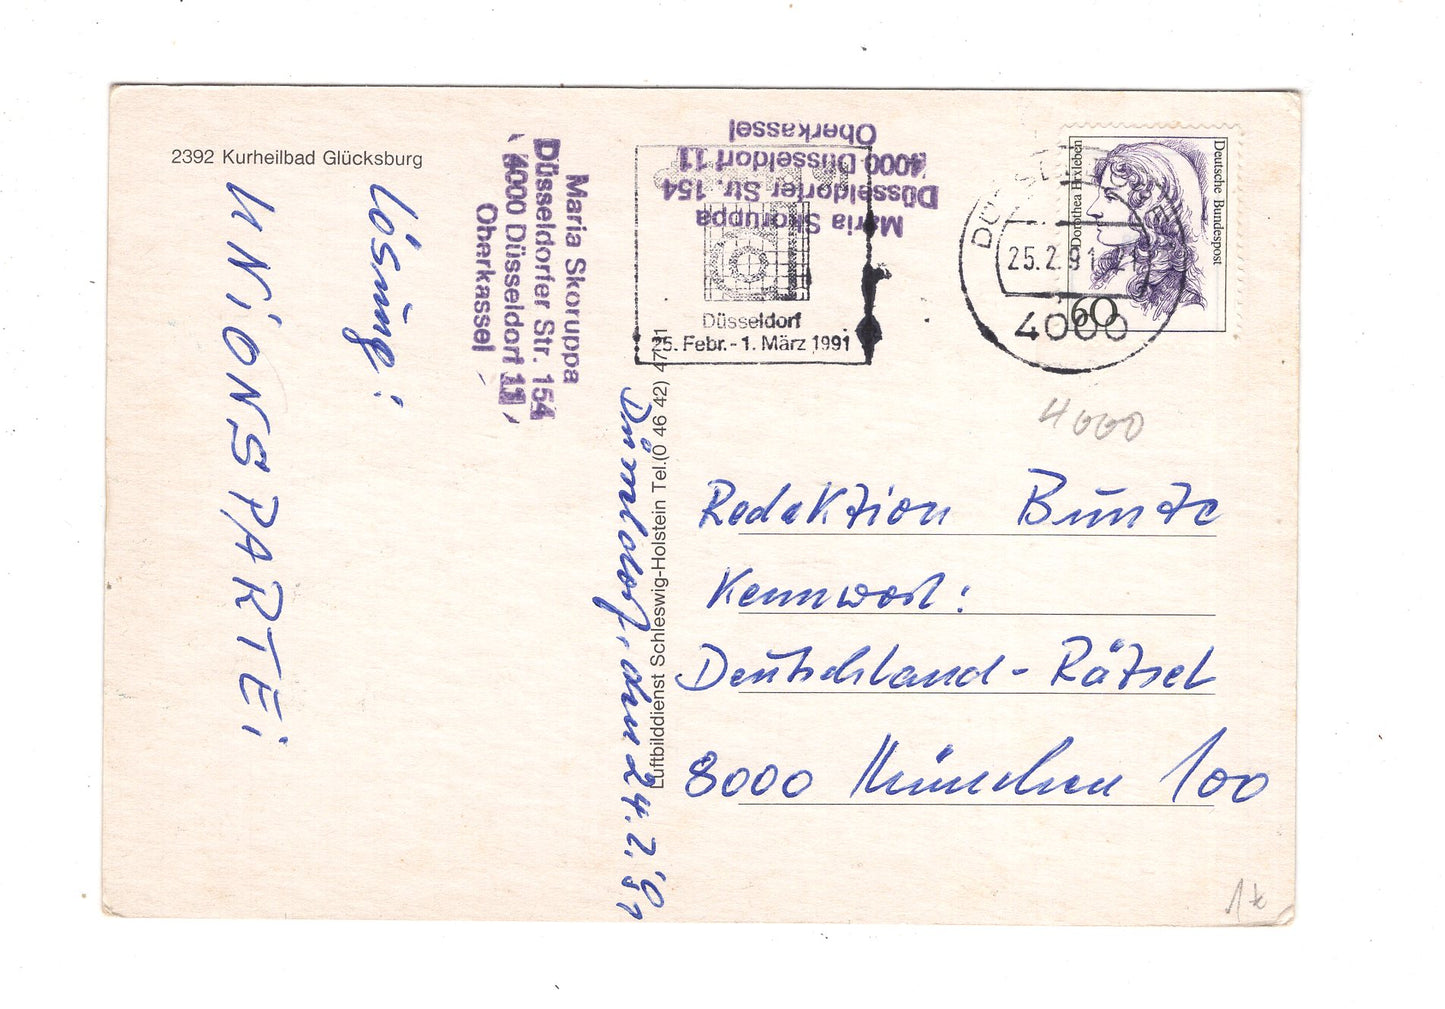 2392 Kurheilbad Glücksburg
Lösung:
UNiONSPARTEi
Maria Skoruppa
Düsseldorfer Str. 154
4000 Düsseldorf 11
Oberkassel
Maria Skoruppa
Düsseldorfer Str. 154
4000 Düsseldorf 11
Oberkassel
Düsseldorf
25. Febr. - 1. März 1991
25.2.91
4000
Deutsche Bundespost
Dorothea Erxleben
60
Luftbilddienst Schleswig-Holstein Tel. (0 46 42)
Düsseldorf, den 24.2.'91
4000
Redaktion Bunte
Kennwort:
Deutschland-Rätsel
8000 München 100